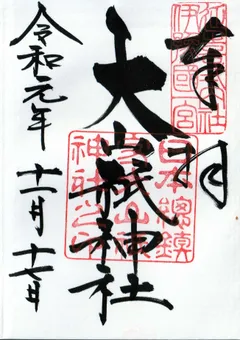 奉拝
伊豫国一宮
大山祇神社
日本總鎮守大山祇神社
令和元年
十一月十七日